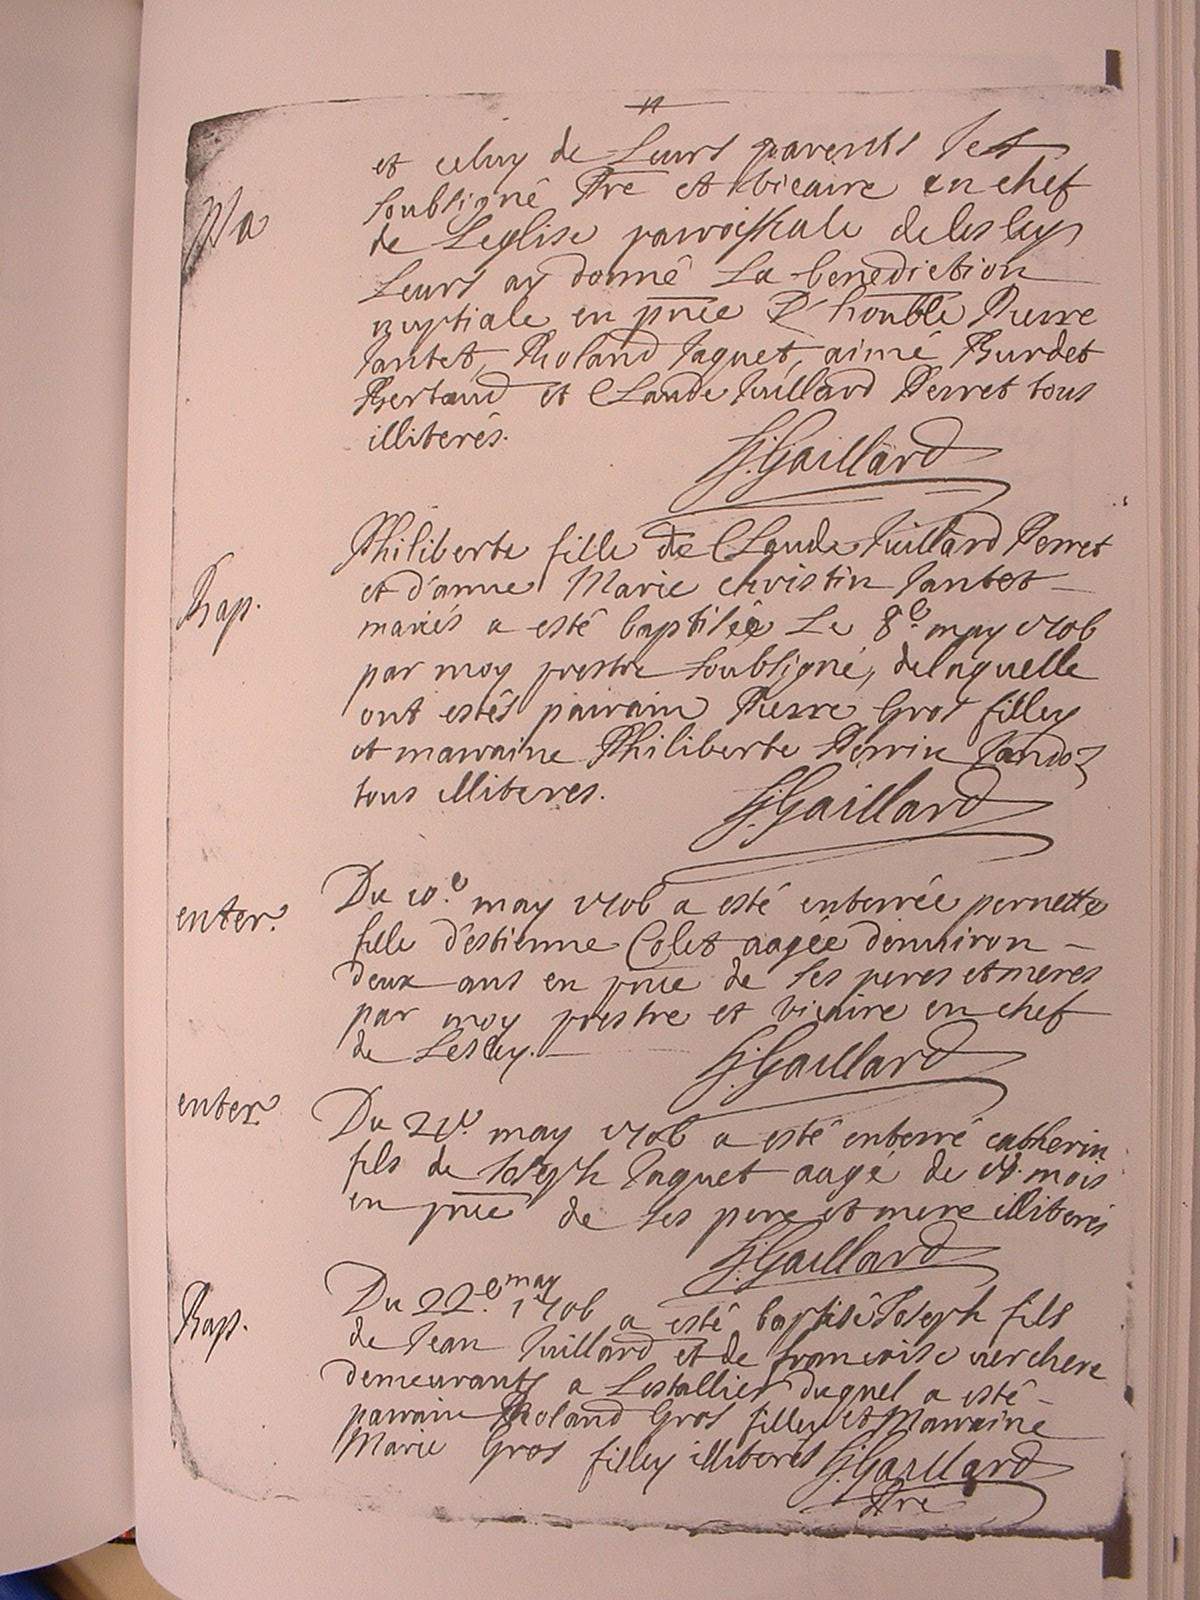 et celuy de Leurs parents Je
soubsigné Pre et vicaire en chef
Ma
de Leglise parroissiale de lescley
Leurs ay donné La benediction
nuptiale en pnce D'honble Pierre
Jantet, Roland Jaquet, aimé Burdet
Bertaud et Claude Juillard Perret tous
illiterés.
G. Gaillard
Philiberte fille de Claude Juillard Perret
et d'anne Marie christin Jantet
Bap.
mariés a esté baptiséé Le 8e may 1706
par moy prestre soubsigné, delaquelle
ont estés pairain Pierre Gros filley
et marraine Philiberte Perrin Jandoz
tous illiteres.
G. Gaillard
enter.
Du 10.e may 1706 a esté enterrée pernette
fille d'estienne Colet aagée denuiron
deux ans en pnce de ses peres et meres
par moy prestre et vicaire en chef
de Lescley.
G. Gaillard
enter.
Du 21e may 1706 a esté enterré catherin
fils de Joseph Jaquet aagé de mois
en pnce de ses pere et mere illiterés
G. Gaillard
Bap.
Du 22.e may 1706 a esté baptisé Joseph fils
de Jean Juillard et de francoise verchere
demeurants a Lestallier duquel a esté
parrain Roland Gros filley et Marraine
Marie Gros filley illiterés G. Gaillard
Pre